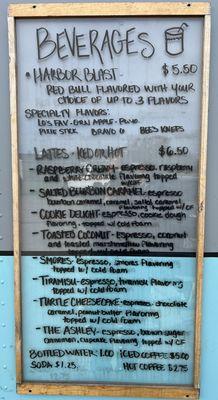 BEVERAGES
• HARBOR BLAST - $5.50
RED BULL FLAVORED WITH YOUR
CHOICE OF UP TO 3 FLAVORS
SPECIALTY FLAVORS:
LO'S FAV - GRN APPLE -
PIXIE STICK BRAVO 6 BEE'S KNEES
LATTES - ICED OR HOT $6.50
- RASPBERRY CREAM - espresso, raspberry
and white chocolate flavoring
- SALTED BOURBON CARAMEL - espresso
bourbon caramel, caramel, salted caramel
flavoring w/CF
- COOKIE DELIGHT - espresso, cookie dough
flavoring, topped w/ cold foam
- TOASTED COCONUT - espresso, coconut
and toasted marshmallow flavoring
- SMORES - espresso, smores flavoring
topped w/ cold foam
- TIRAMISU - espresso, tiramisu flavoring
topped w/ cold foam
- TURTLE CHEESECAKE - espresso, chocolate
caramel, peanut butter flavoring
topped w/ cold foam
- THE ASHLEY - espresso, brown sugar
cinnamon, cupcake flavoring topped w/ CF
BOTTLED WATER: 1.00 ICED COFFEE $5.00
SODA $1.25 HOT COFFEE $2.75